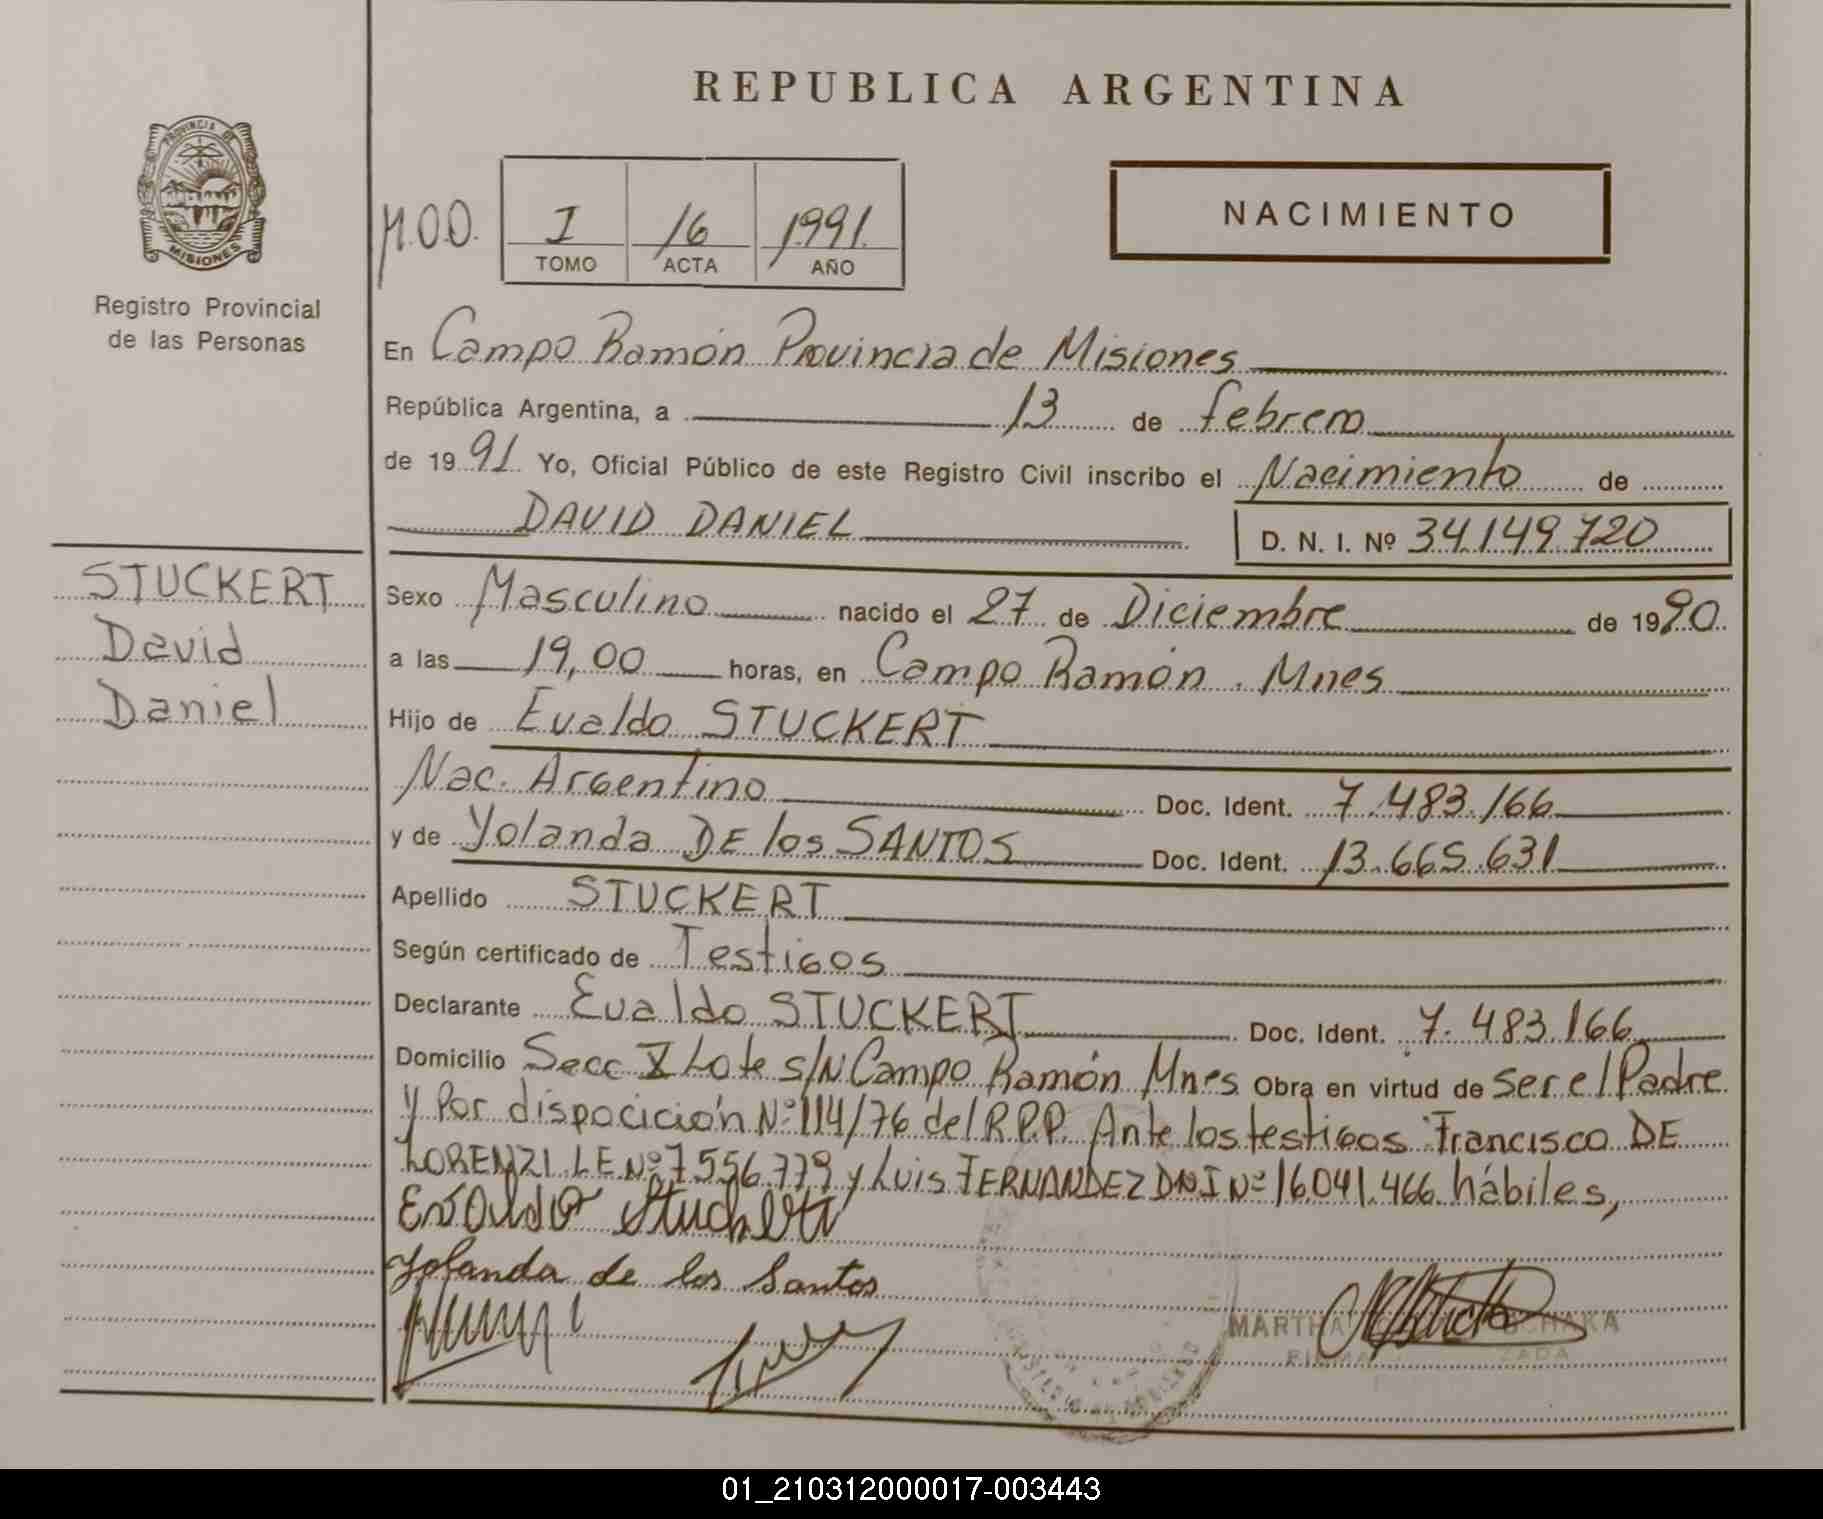 REPUBLICA ARGENTINA
PROVINCIA DE
MISIONES
Registro Provincial
de las Personas
M.O.D.
I
16
1991
TOMO
ACTA
AÑO
NACIMIENTO
En Campo Ramón Provincia de Misiones
República Argentina, a 13 de febrero
de 1991 Yo, Oficial Público de este Registro Civil inscribo el Nacimiento de
DAVID DANIEL
D. N. I. Nº 34.149.720
STUCKERT
David
Daniel
Sexo Masculino nacido el 27 de Diciembre de 1990
a las 19,00 horas, en Campo Ramón. Mnes
Hijo de Evaldo STUCKERT
Nac. Argentino Doc. Ident. 7.483.166
y de Yolanda DE los SANTOS Doc. Ident. 13.665.631
Apellido STUCKERT
Según certificado de Testigos
Declarante Evaldo STUCKERT Doc. Ident. 7.483.166
Domicilio Secc X Lote s/N Campo Ramón Mnes Obra en virtud de ser el Padre
y Por dispocición Nº 114/76 del R.P.P. Ante los testigos Francisco DE
LORENZI L.E.Nº 7.556.779 y Luis FERNANDEZ DNI Nº 16.041.466 hábiles,
Evaldo Stuckert
Yolanda de los Santos
MARTHA
01_210312000017-003443